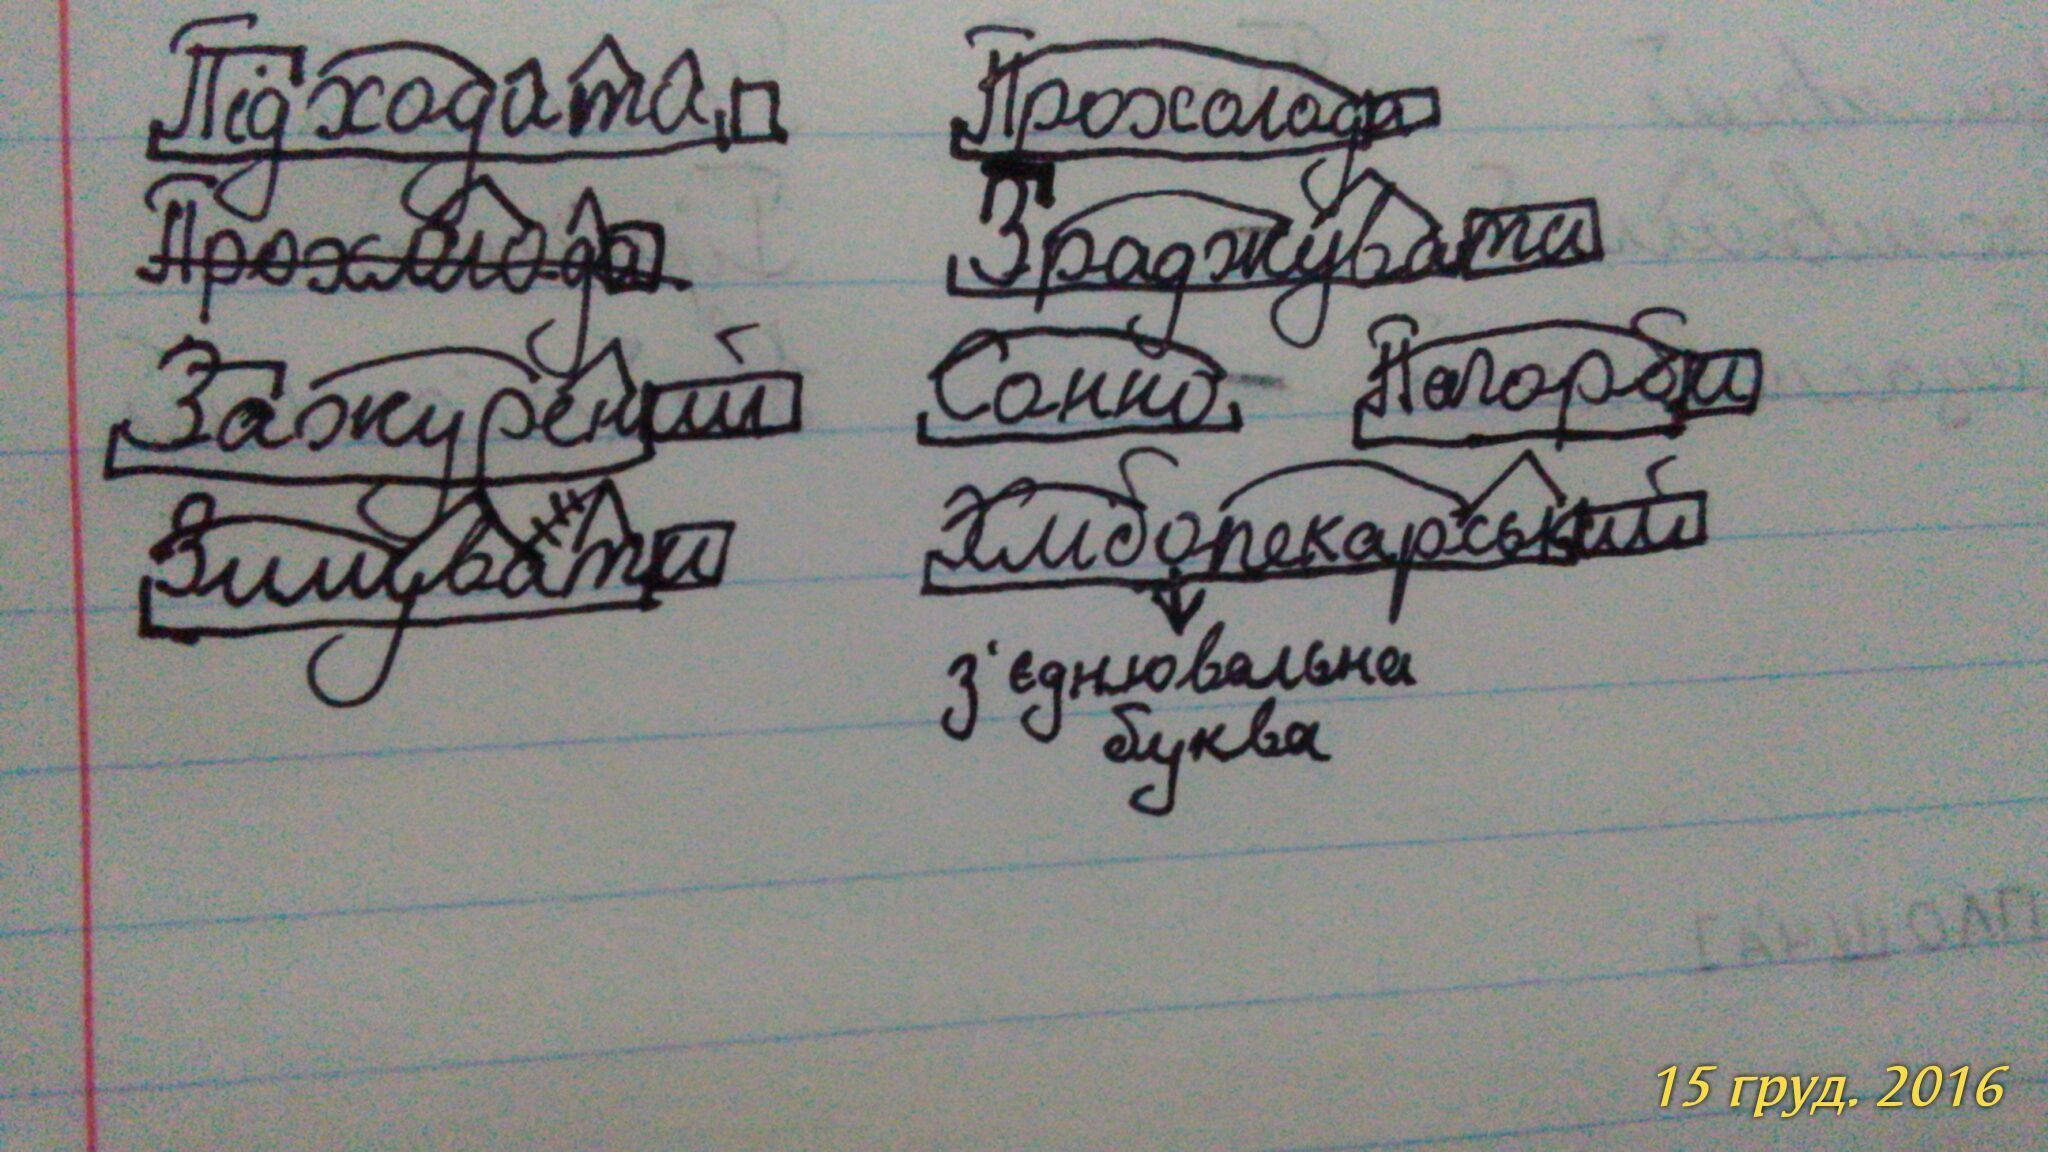 Підходити
Прохолода
Зажурений
Зимувати
Прохолода
Зраджувати
Сонно Пагорби
Хлібопекарський
з'єднювальна
буква
15 груд. 2016